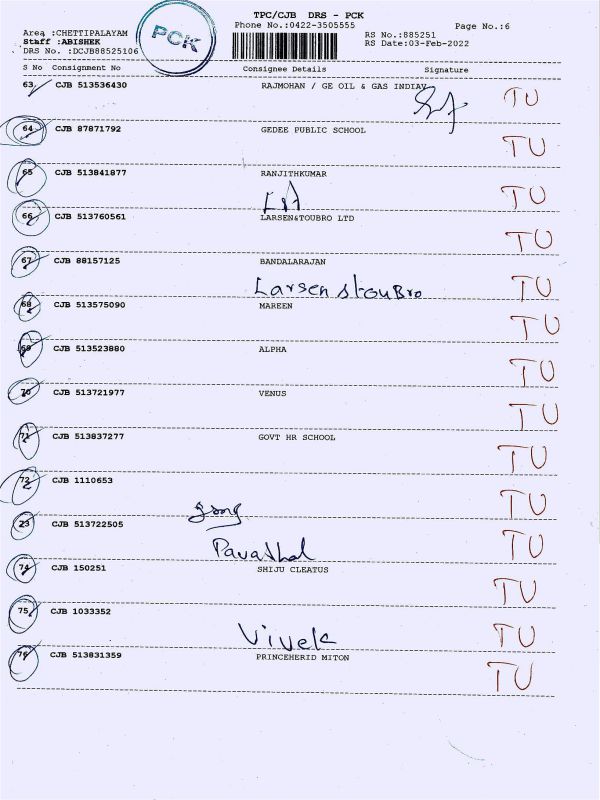 TPC/CJB DRS - PCK
Phone No.:0422-3505555
Page No.:6
Area :CHETTIPALAYAM
Staff :ABISHEK
DRS No. :DCJB88525106
PCK
RS No.:885251
RS Date:03-Feb-2022
S No Consignment No Consignee Details Signature
63 CJB 513536430 RAJMOHAN / GE OIL & GAS INDIAV TU
64 CJB 87871792 GEDEE PUBLIC SCHOOL TU
65 CJB 513841877 RANJITHKUMAR TU
66 CJB 513760561 LARSEN&TOUBRO LTD TU
67 CJB 88157125 BANDALARAJAN TU
Larsen &touBro
68 CJB 513575090 MAREEN TU
69 CJB 513523880 ALPHA TU
70 CJB 513721977 VENUS TU
71 CJB 513837277 GOVT HR SCHOOL TU
72 CJB 1110653 TU
23 CJB 513722505 TU
Pavathal
74 CJB 150251 SHIJU CLEATUS TU
75 CJB 1033352 TU
Vivek
76 CJB 513831359 PRINCEHERID MITON TU